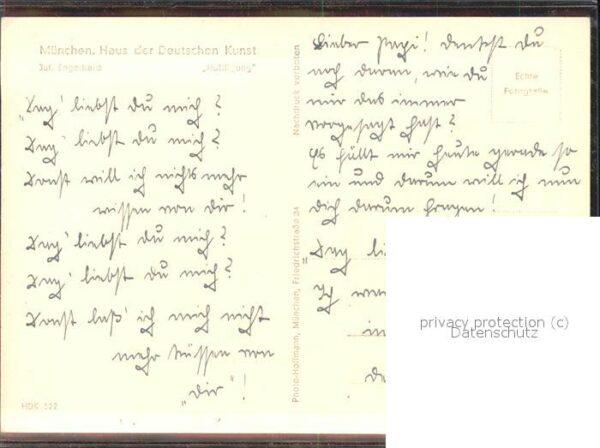 München. Haus der Deutschen Kunst
Jul. Engelhard „Huldigung"
„Sag' liebst du mich?
Sag' liebst du mich?
Sonst will ich nichts mehr
wissen von dir!
Sag' liebst du mich?
Sag' liebst du mich?
Sonst laß' ich mich nicht
mehr küssen von
„dir"!
HDK 522
Nachdruck verboten
Photo-Hoffmann, München, Friedrichstraße 34
Lieber Papi! Denkst du
noch daran, wie du
mir das immer
vorgesagt hast?
Es fällt mir heute gerade so
ein und darum will ich nun
dich darum fragen!
„Sag lie
Ich
in
de
Echte
Fotografie
privacy protection (c)
Datenschutz